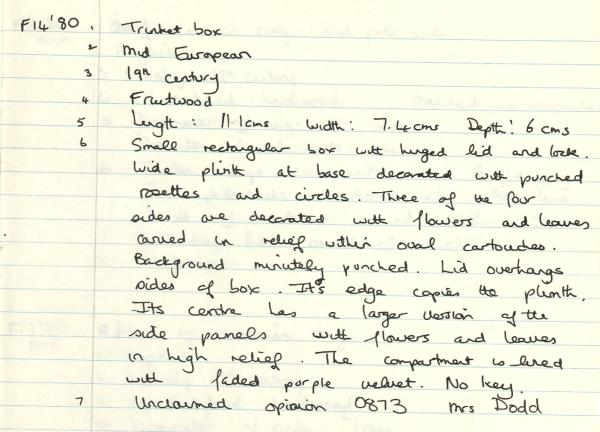 F14'80. Trinket box
2 Mid European
3 19th century
4 Fruitwood
5 Length: 11.1cms Width: 7.4cms Depth: 6 cms
6 Small rectangular box with hinged lid and lock.
Wide plinth at base decorated with punched
rosettes and circles. Three of the four
sides are decorated with flowers and leaves
carved in relief within oval cartouches.
Background minutely punched. Lid overhangs
sides of box. It's edge copies the plinth.
Its centre has a larger version of the
side panels with flowers and leaves
in high relief. The compartment is lined
with faded purple velvet. No key.
7 Unclaimed opinion 0873 Mrs Dodd